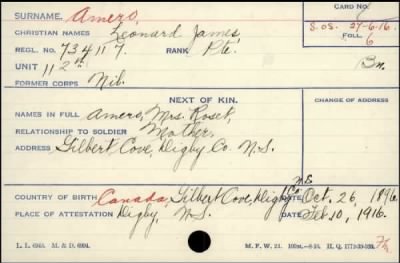 CARD NO.
SURNAME. Amero,
S.O.S. 27-6-16.
CHRISTIAN NAMES Leonard James,
FOLL. 6
REGL. NO. 734117 RANK Pte.
UNIT 112th Bn.
FORMER CORPS Nil.
NEXT OF KIN.
CHANGE OF ADDRESS
NAMES IN FULL Amero, Mrs. Roset,
RELATIONSHIP TO SOLDIER Mother,
ADDRESS Gilbert Cove, Digby Co. N.S.
COUNTRY OF BIRTH Canada, Gilbert Cove, Digby Co. N.S. DATE Oct. 26, 1896
PLACE OF ATTESTATION Digby, N.S. DATE Feb. 10, 1916.
M. F. W. 21.